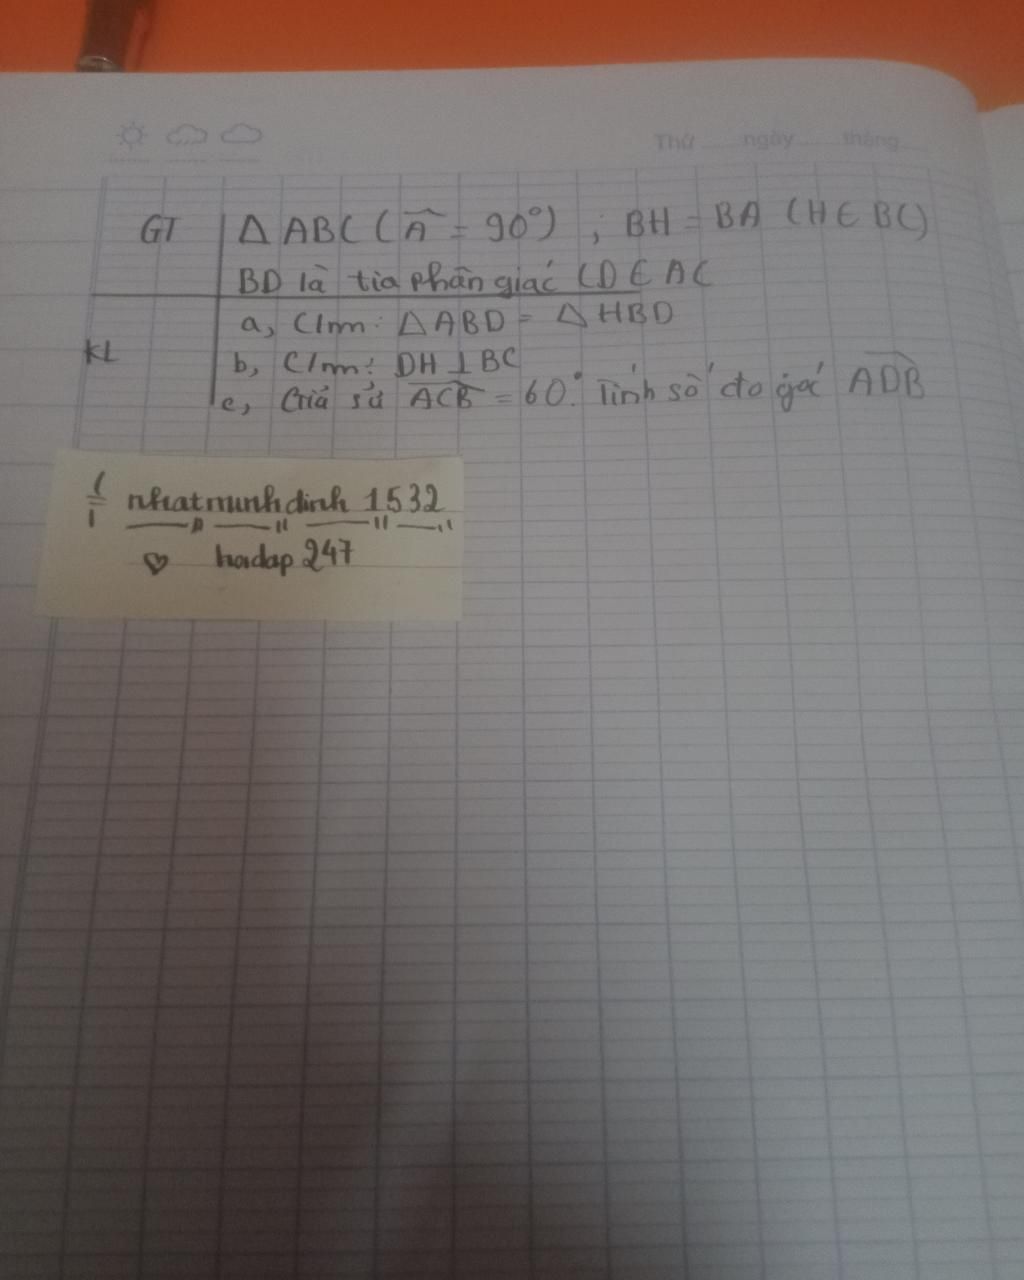 Thứ ngày tháng
GT ΔABC (Â = 90°) ; BH = BA (H ∈ BC)
BD là tia phân giác (D ∈ AC
a, C/m: ΔABD = ΔHBD
KL
b, C/m: DH ⊥ BC
c, Giả sử ACB = 60°. Tính số đo góc ADB
nhatminhdinh 1532
♡ hoidap 247